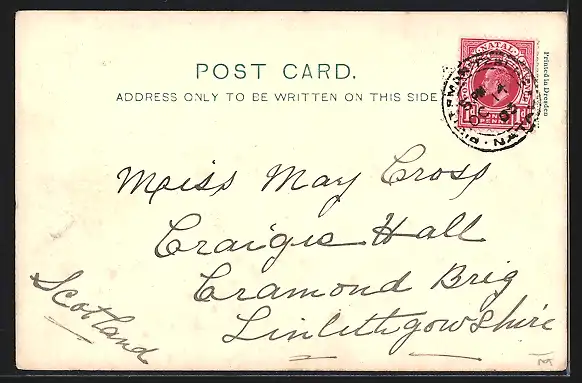 POST CARD.
ADDRESS ONLY TO BE WRITTEN ON THIS SIDE
NATAL
PENNY
Printed in Dresden
Miss May Cross
Craigie Hall
Cramond Brig
Linlithgowshire
Scotland